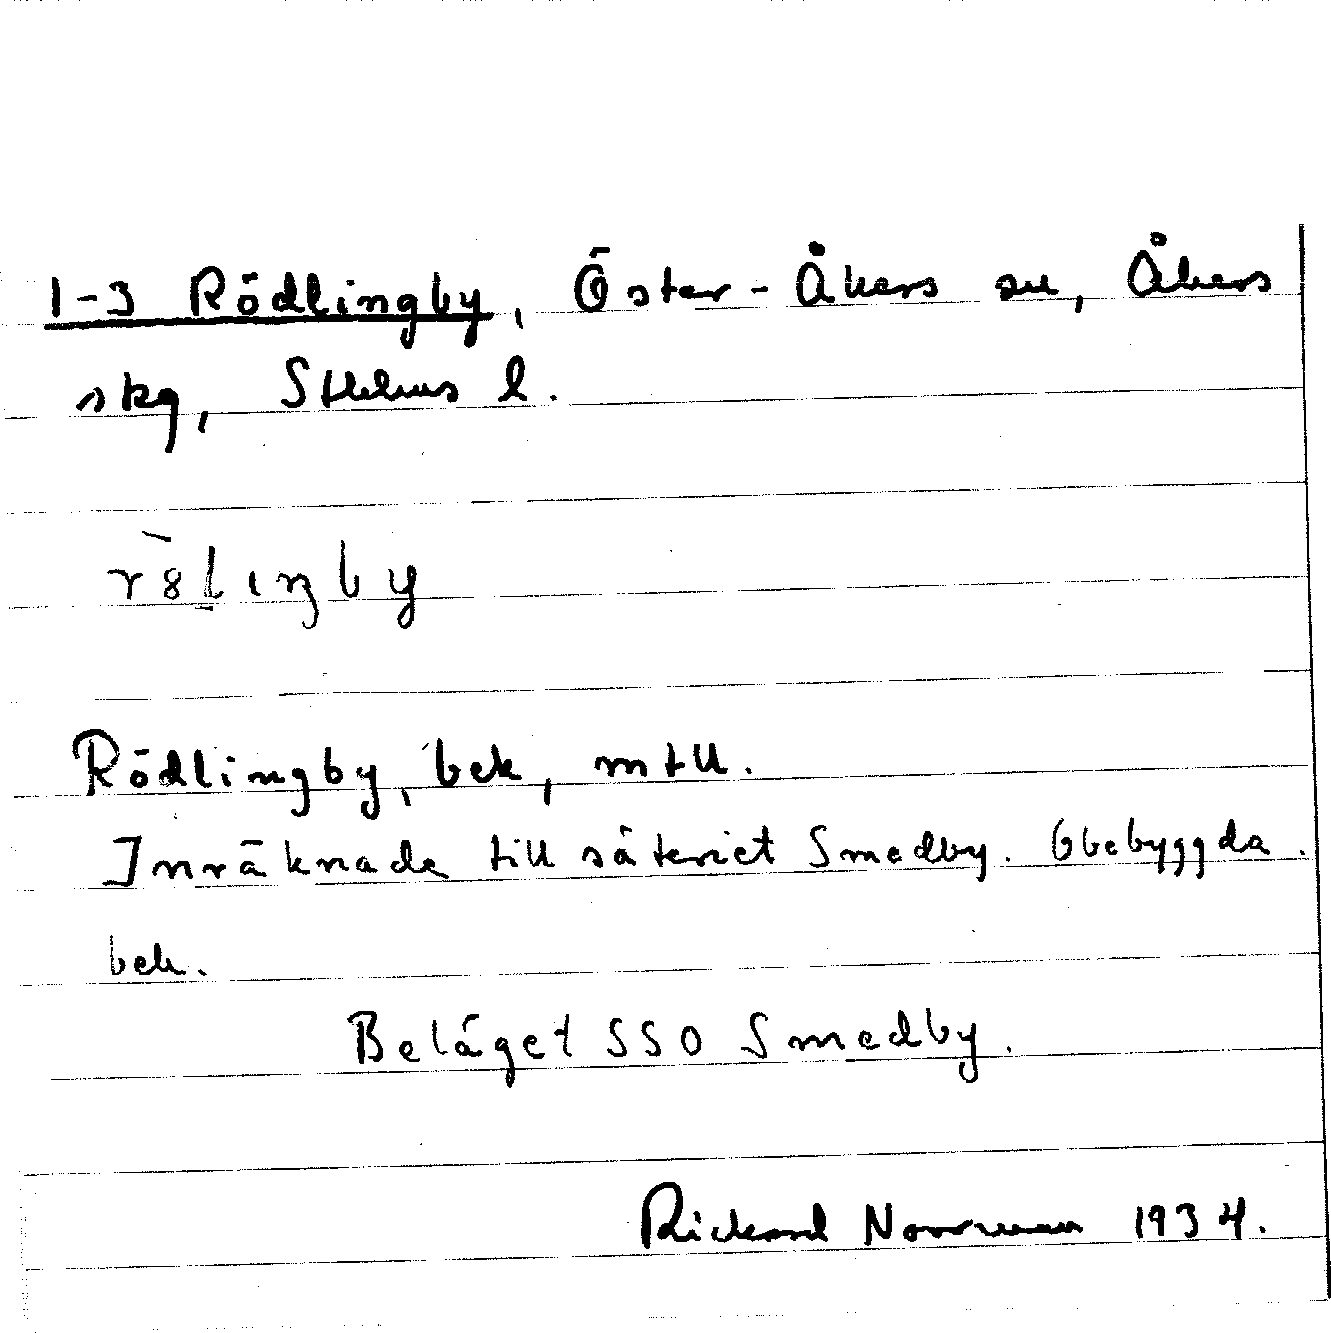 1-3 Rödlingby, Öster-Åkers sn, Åkers
skg, Sthlms l.
rö̀lıŋby
Rödlingby, bek, mtll.
Inräknade till säteriet Smedby. Obebyggda.
bek.
Beläget SSO Smedby.
Rickard Norrman 1934.